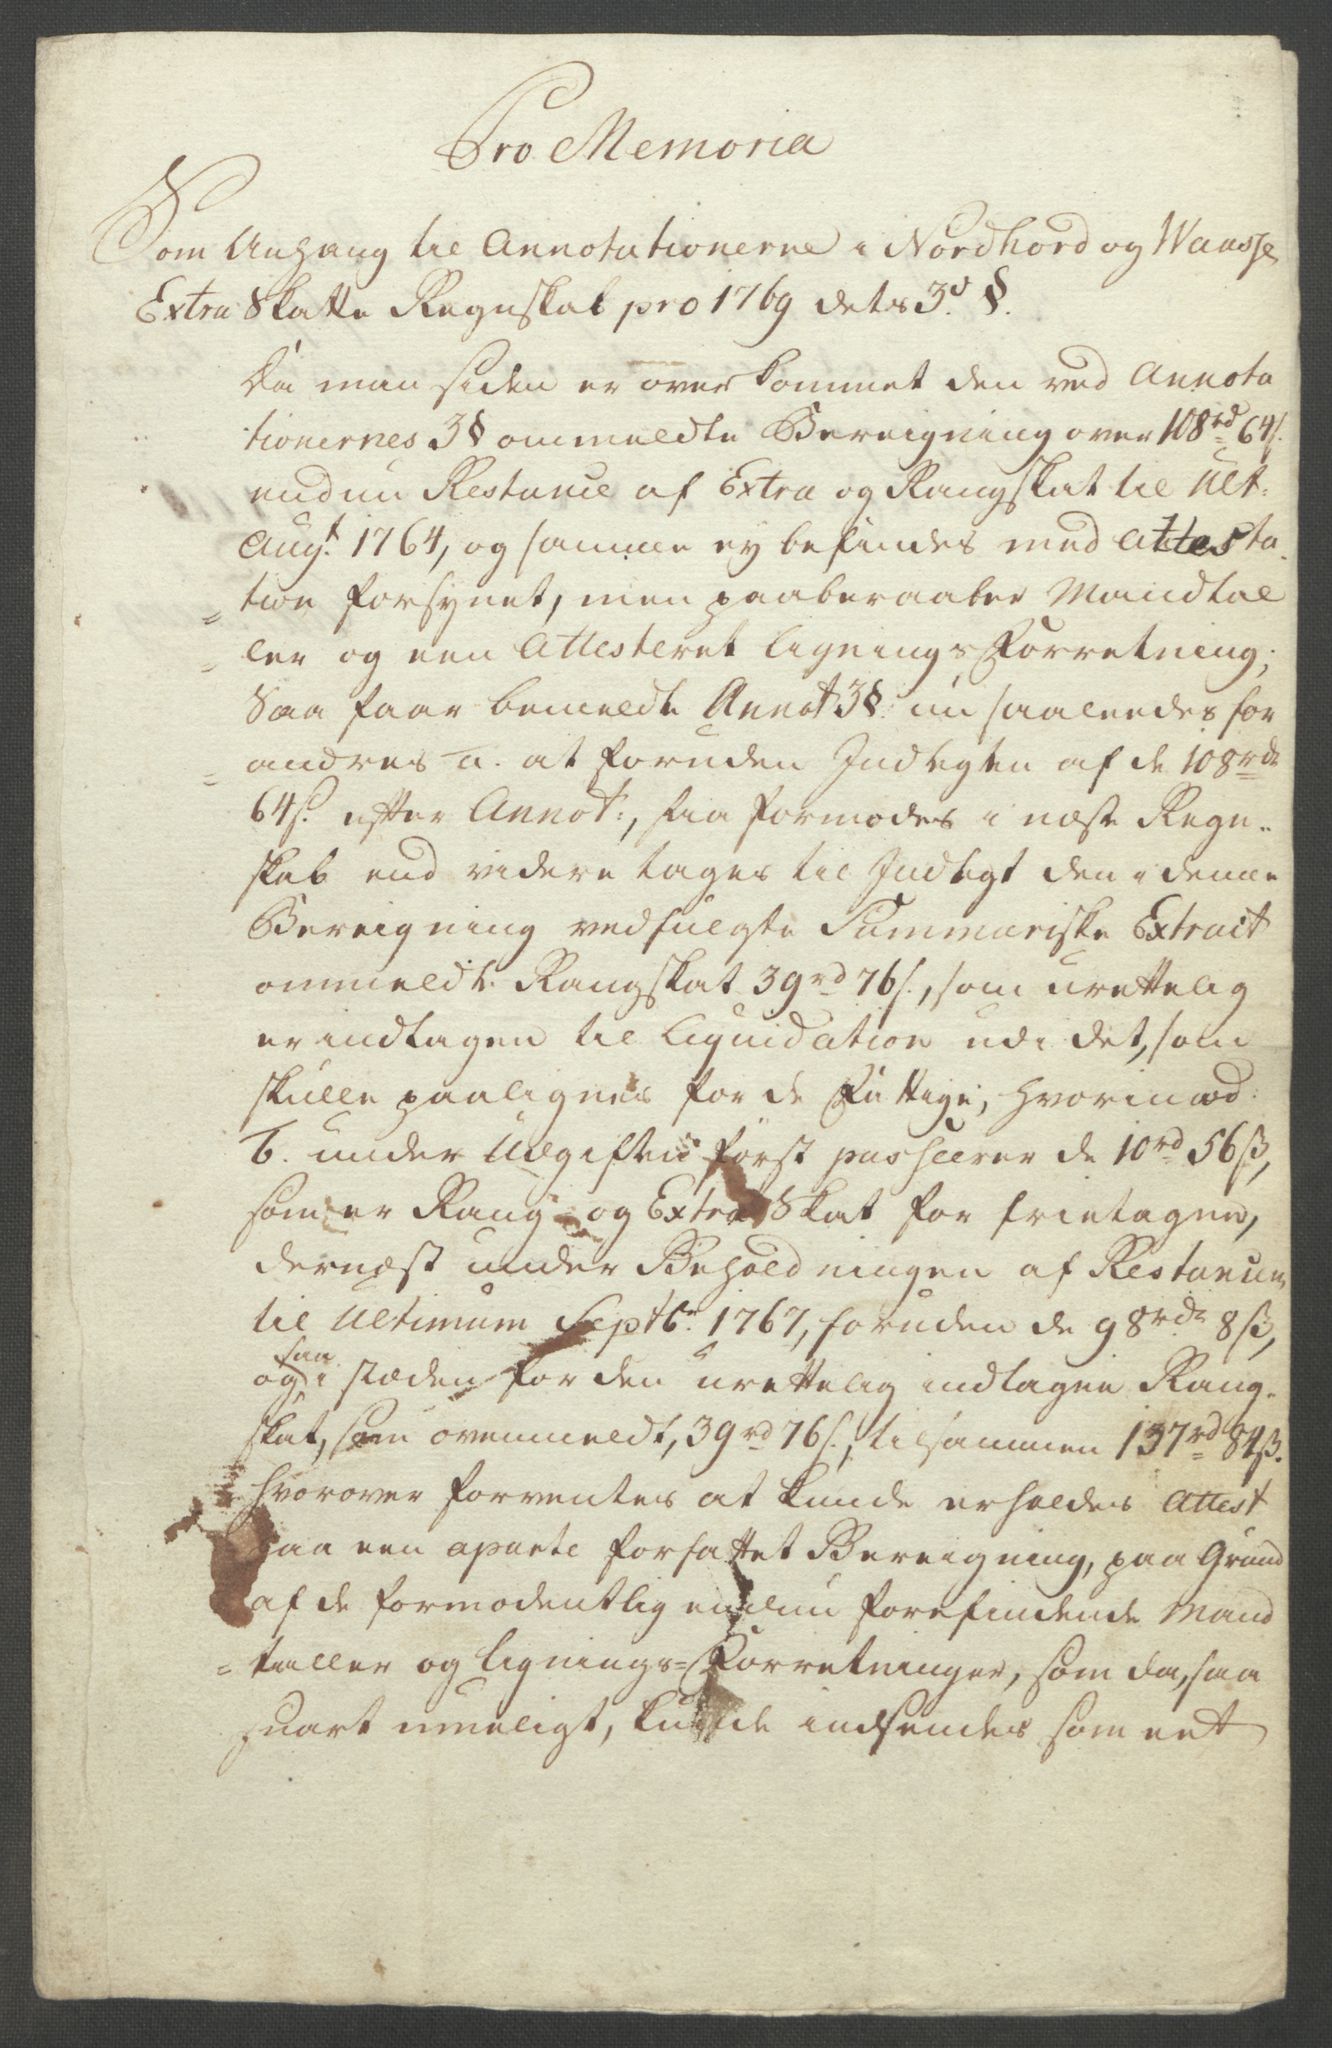 Pro Memoria
Som Anhang til Annotationerne i Nordhord og Waasse
Extra Skatte Regnskab pro 1769 dets 3d §.
Da man siden er overkommet den ved Annota
tionernes 3 § ommeldte Bereigning over 108rd 64s.
endnu Restance af Extra og Rangskat til Ult:
Augt. 1764, og samme ey befindes med Attesta
= tion forsynet, men paaberaaber Mandtal
= ler og een Attesteret Lignings Forretning;
Saa faar bemeldte Annot 3§ nu saaleedes for
= andres a. at foruden Indtegten af de 108rd
64s. efter Annot:, saa formodes i næste Regn-
skab end videre tages til Indtegt den i denne
Bereigning vedfulgte Summariske Extrait
ommeldte Rangskat 39rd 76s., som urettelig
er indtagen til Liquidation udi det, som
skulle paalignes for de Fattige, hvorimod
b. under Udgiften først passeerer de 10rd 56ß,
som er Rang- og Extra Skat for frietagne,
dernæst under Beholdningen af Restancen
til Ultimum Septbr. 1767, foruden de 98rd 8ß,
saa
og i stæden for den urettelig indtagne Rang-
skat, som ovenmeldt, 39rd 76s., tilsammen 137rd 84ß.
hvorover forventes at kunde erholdes Attest
paa een aparte forfattet Bereigning, paa Grund
af de formodentlig endnu forefindende Mand
= taller og Lignings=Forretninger, som da, saa
snart mueligt, kunde indsendes som eet